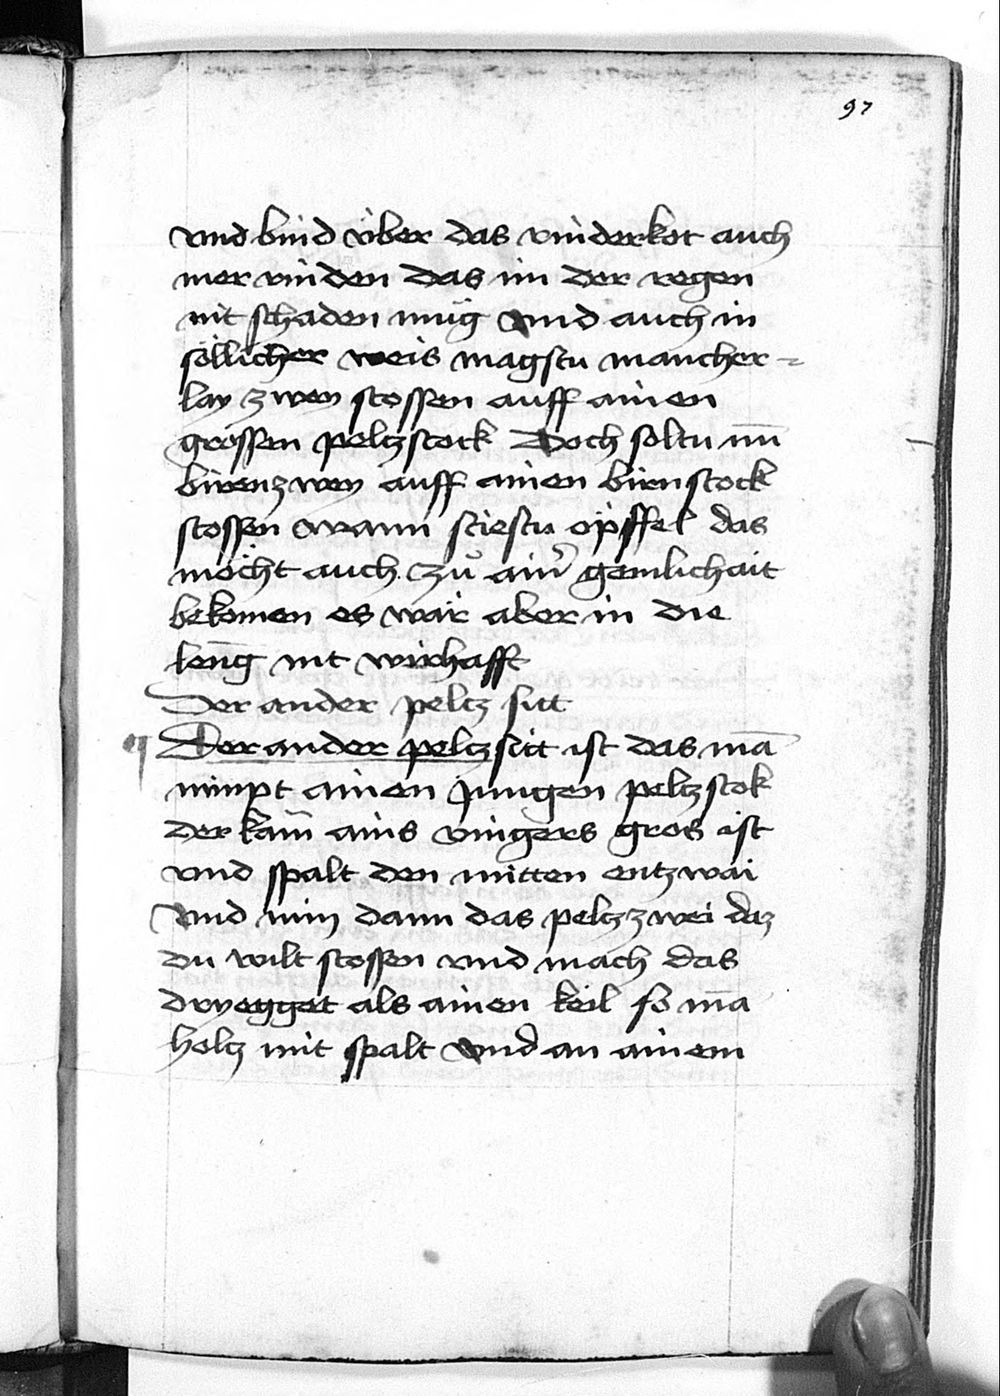 97
vnd bind v̈ber das rinderkot auch
mer rinden das im der regen
nit schaden mu̇g vnd auch in
söllicher weis magstu mancher=
lay zwey stossen auff ainen
grossen peltzstock Doch soltu nun̄
birenzwey auff ainen birnstock
stossen wann stiestu öpffel das
möcht auch zů ain̾ gemlichait
bekomen es wär aber in die
leng̅ nit wirhafft
Der ander peltz sitt
¶ Der ander peltzsitt ist das mā
nimpt ainen jungen peltzstok
der kam̄ ains vingers gros ist
vnd spalt den mitten entzwai
Vnd nim dann das peltzzwei daz
du wilt stossen vnd mach das
dryegget als ainen keil so mā
holtz mit spalt vnd an ainem